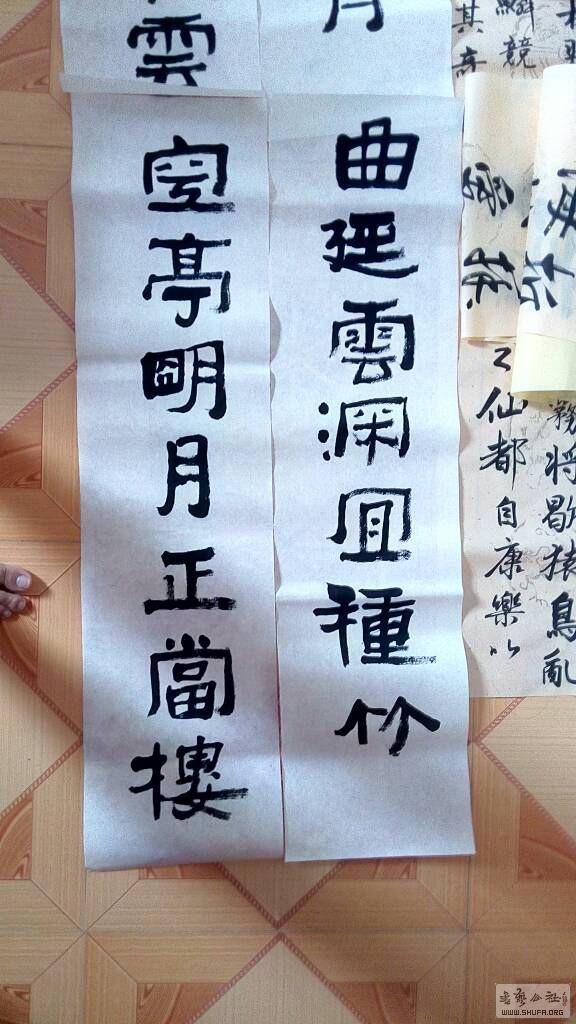 霧將歇猿鳥亂
鱗競
之仙都自康樂以
其奇
月
雲
曲延雲深宜種竹
空亭明月正當樓
WWW.SHUFA.ORG